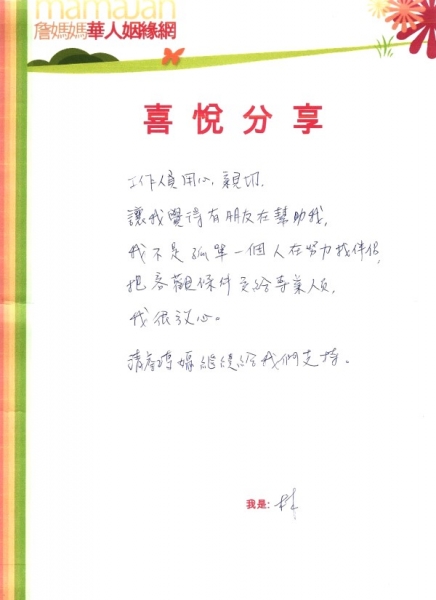 mamaJan
詹媽媽華人姻緣網
喜悅分享
工作員用心,親切,
讓我覺得有朋友在幫助我,
我不是孤單一個人在努力找伴侶,
把客觀條件交給專業人員,
我很放心。
請詹媽媽繼續給我們支持。
我是:林